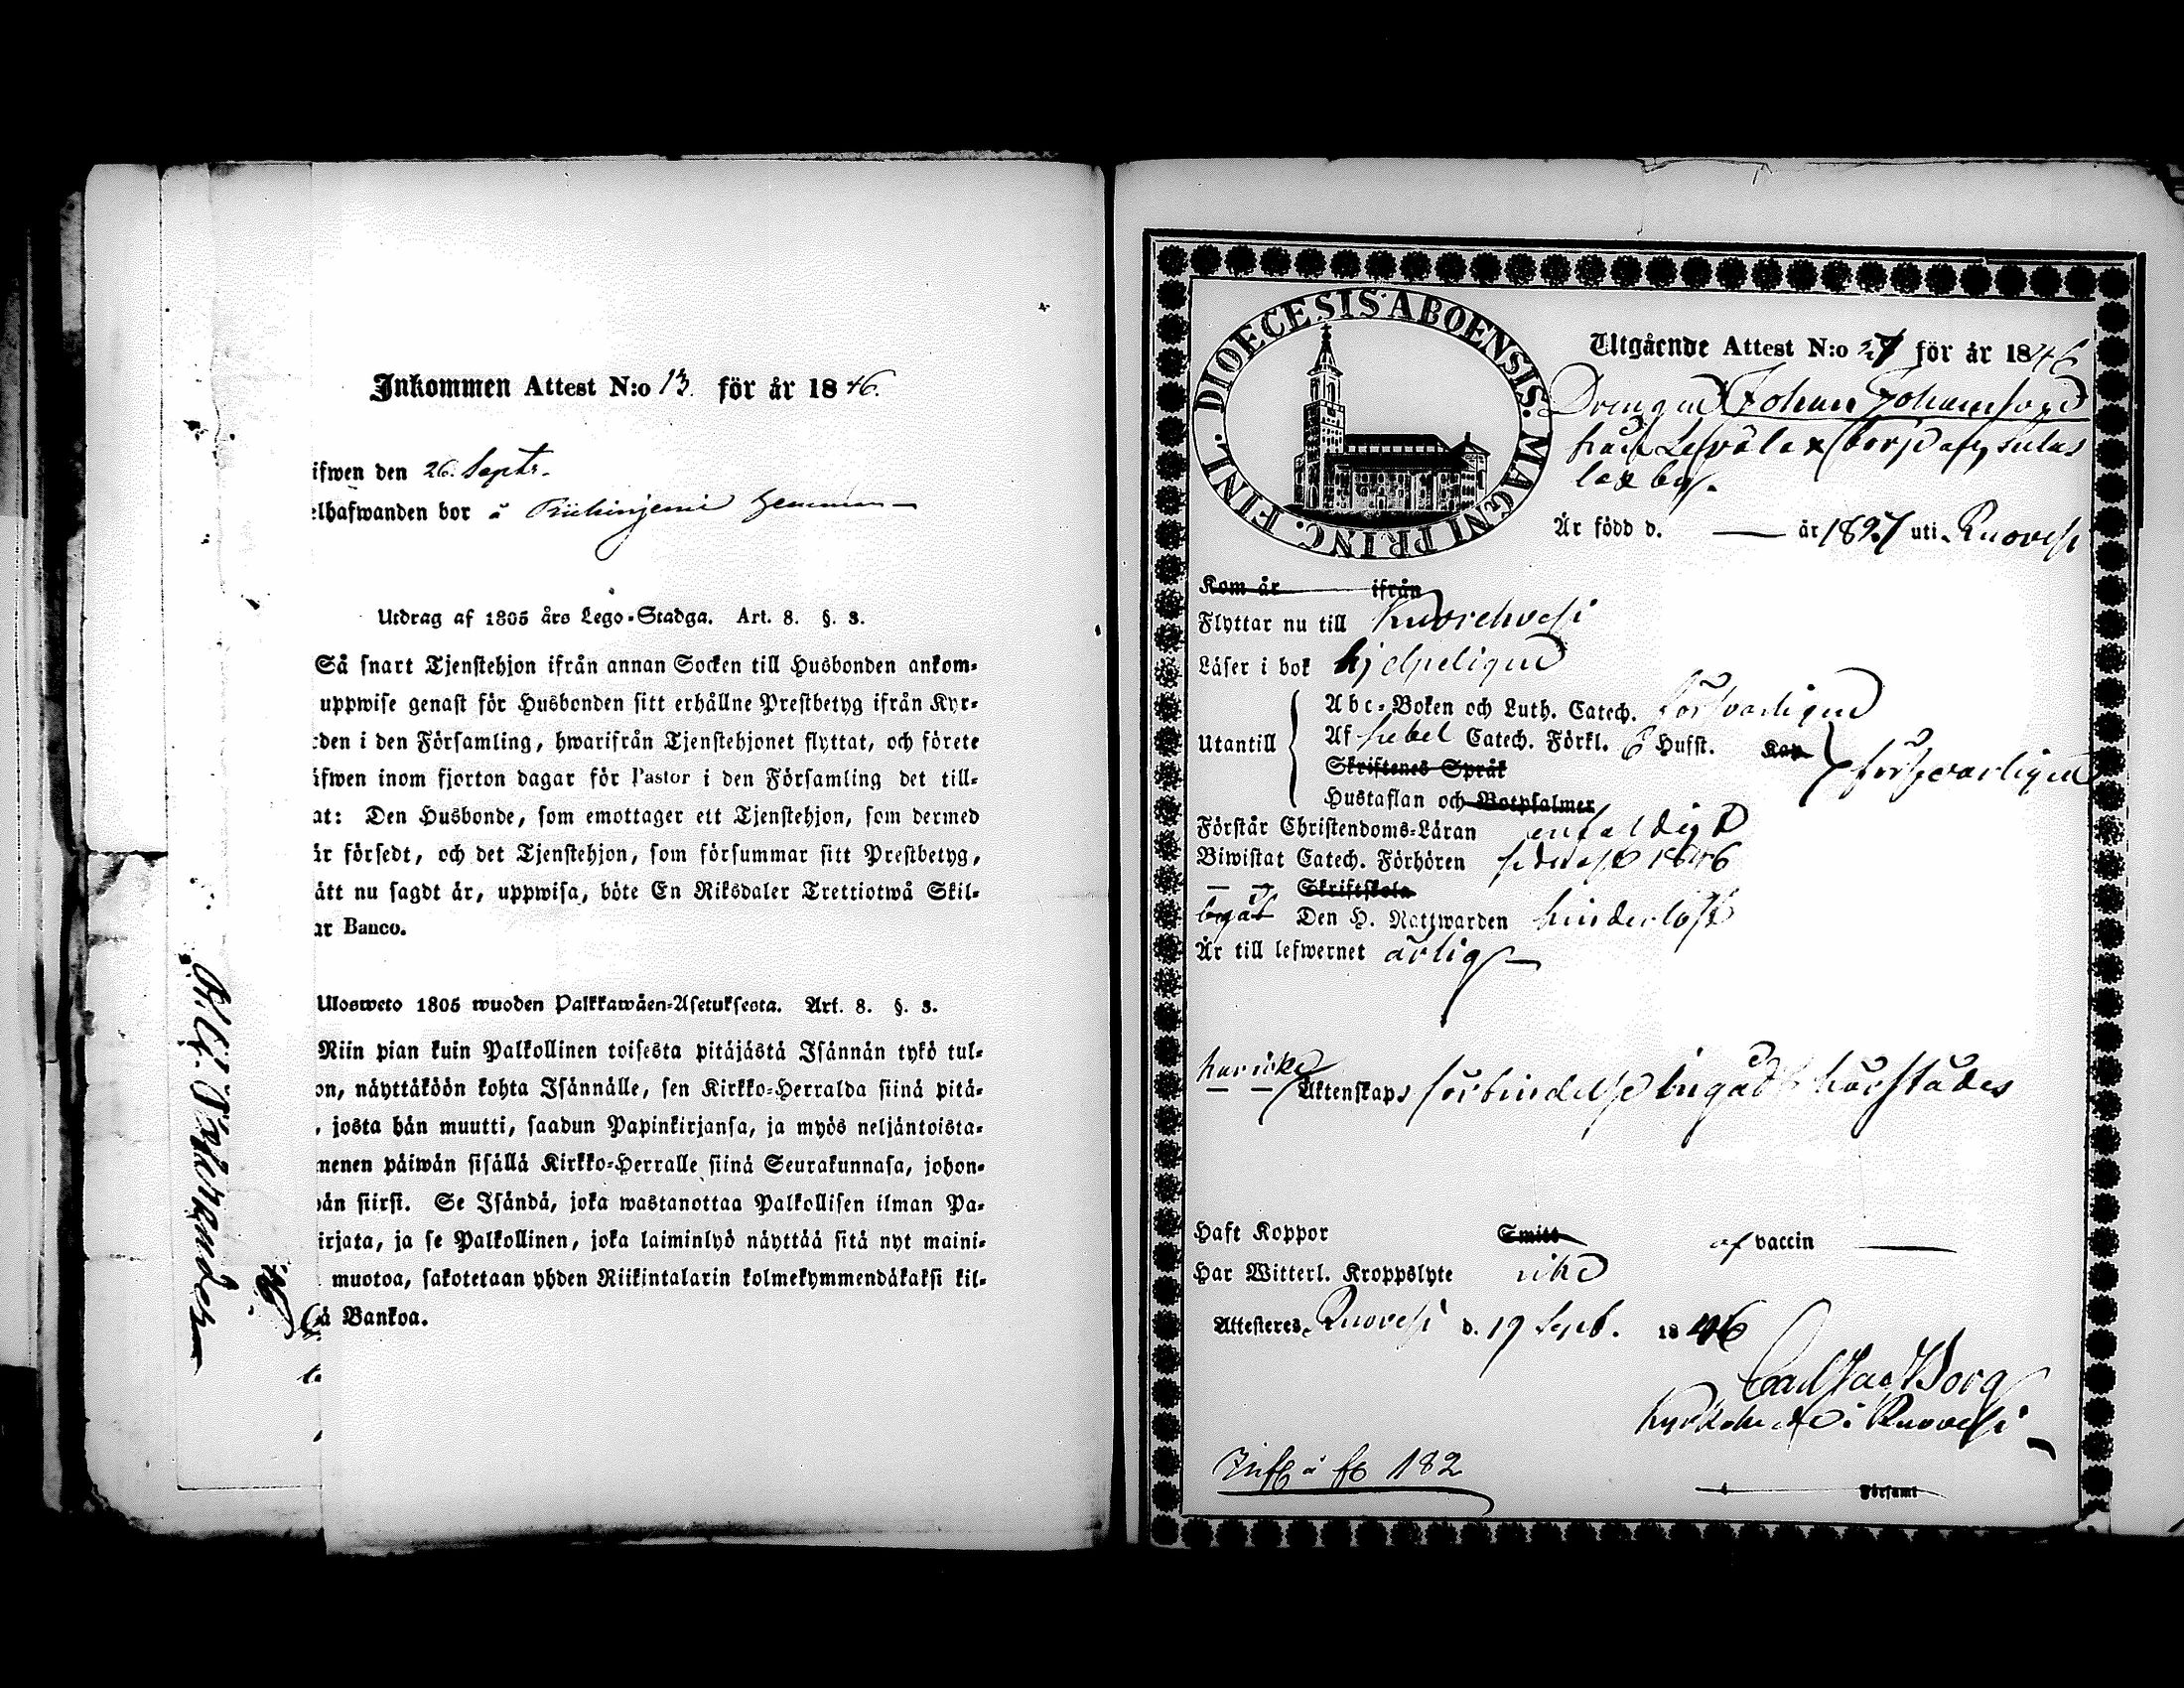 Inkommen Attest N:o 13. för år 1846.
ifwen den 26. Septr.
elhafwanden bor å Riihinjemi hemman
Utdrag af 1805 års Lego-Stadga. Art. 8. §. 3.
Så snart Tjenstehjon ifrån annan Socken till Husbonden ankom-
uppwise genast för Husbonden sitt erhållne Prestbetyg ifrån Kyr-
den i den Församling, hwarifrån Tjenstehjonet flyttat, och förete
äfwen inom fjorton dagar för Pastor i den Församling det till-
at: Den Husbonde, som emottager ett Tjenstehjon, som dermed
är försedt, och det Tjenstehjon, som försummar sitt Prestbetyg,
ätt nu sagdt är, uppwisa, böte En Riksdaler Trettiotwå Skil-
ar Banco.
Ulosweto 1805 wuoden Palkkawäen-Asetuksesta. Art. 8. §. 3.
Niin pian kuin Palkollinen toisesta pitäjästä Isännän tykö tul-
on, näyttäköön kohta Isännälle, sen Kirkko-Herralda siinä pitä-
, josta hän muutti, saadun Papinkirjansa, ja myös neljäntoista-
menen päiwän sisällä Kirkko-Herralle siinä Seurakunnasa, johon-
hän siirst. Se Isändä, joka wastanottaa Palkollisen ilman Pa-
irjata, ja se Palkollinen, joka laiminlyö näyttää sitä nyt maini-
muotoa, sakotetaan yhden Riikintalarin kolmekymmendäkaksi kil-
ä Bankoa.
DIOECESIS ABOENSIS. MAGNI PRINC. FINL.
Utgående Attest N:o 27 för år 1846
Drengen Johan Johansson
från torp af
lax by.
Är född d. — år 1827 uti Ruovesi
Kom år ifrån
Flyttar nu till Kuorehvesi
Läser i bok hjelpeligen
Abc-Boken och Luth. Catech. försvarligen
Utantill Af Sebel Catech. Förkl. 6 Hufst. Kap försvarligen
Skriftenes Språk
Hustaflan och Botpsalmer
Förstår Christendoms-Läran enfaldigt
Biwistat Catech. Förhören senast 1846
— — Skriftskola
begått Den H. Nattwarden hinderlöst
Är till lefwernet ärlig
har icke
— — Äktenskaps förbindelse ingådt härstädes
Haft Koppor Smitt af vaccin —
Har Witterl. Kroppslyte icke
Attesteres, Ruovesi d. 19 Sept. 1846
Carl Borg
Kyrkoherde i Ruovesi
Församl
182